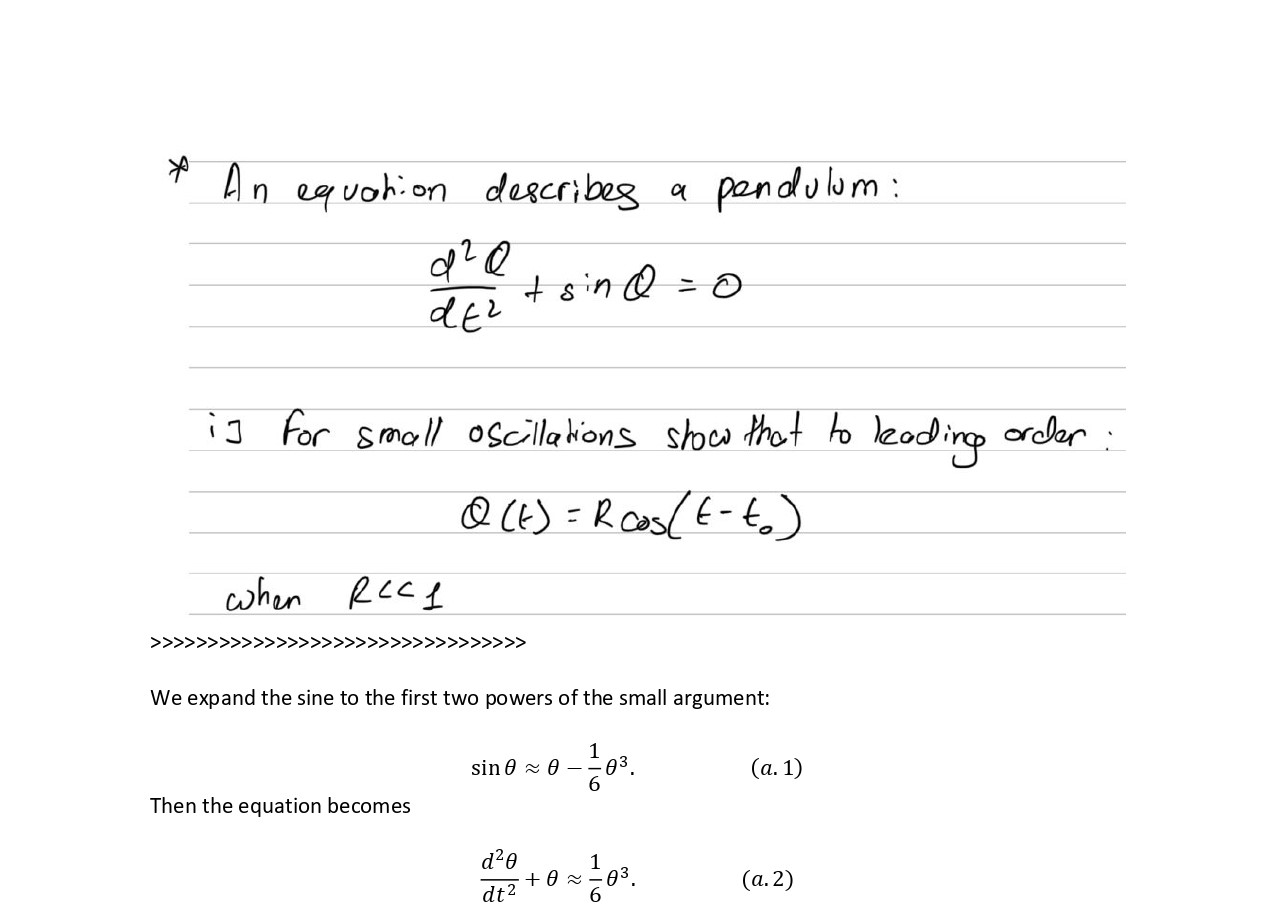 * An equation describes a pendulum:
d²θ/dt² + sin θ = 0
i] for small oscillations show that to leading order:
θ(t) = R cos(t - t₀)
when R<<1
>>>>>>>>>>>>>>>>>>>>>>>>>>>>>>>>>
We expand the sine to the first two powers of the small argument:
sin θ ≈ θ − 1/6 θ³. (a. 1)
Then the equation becomes
d²θ/dt² + θ ≈ 1/6 θ³. (a. 2)